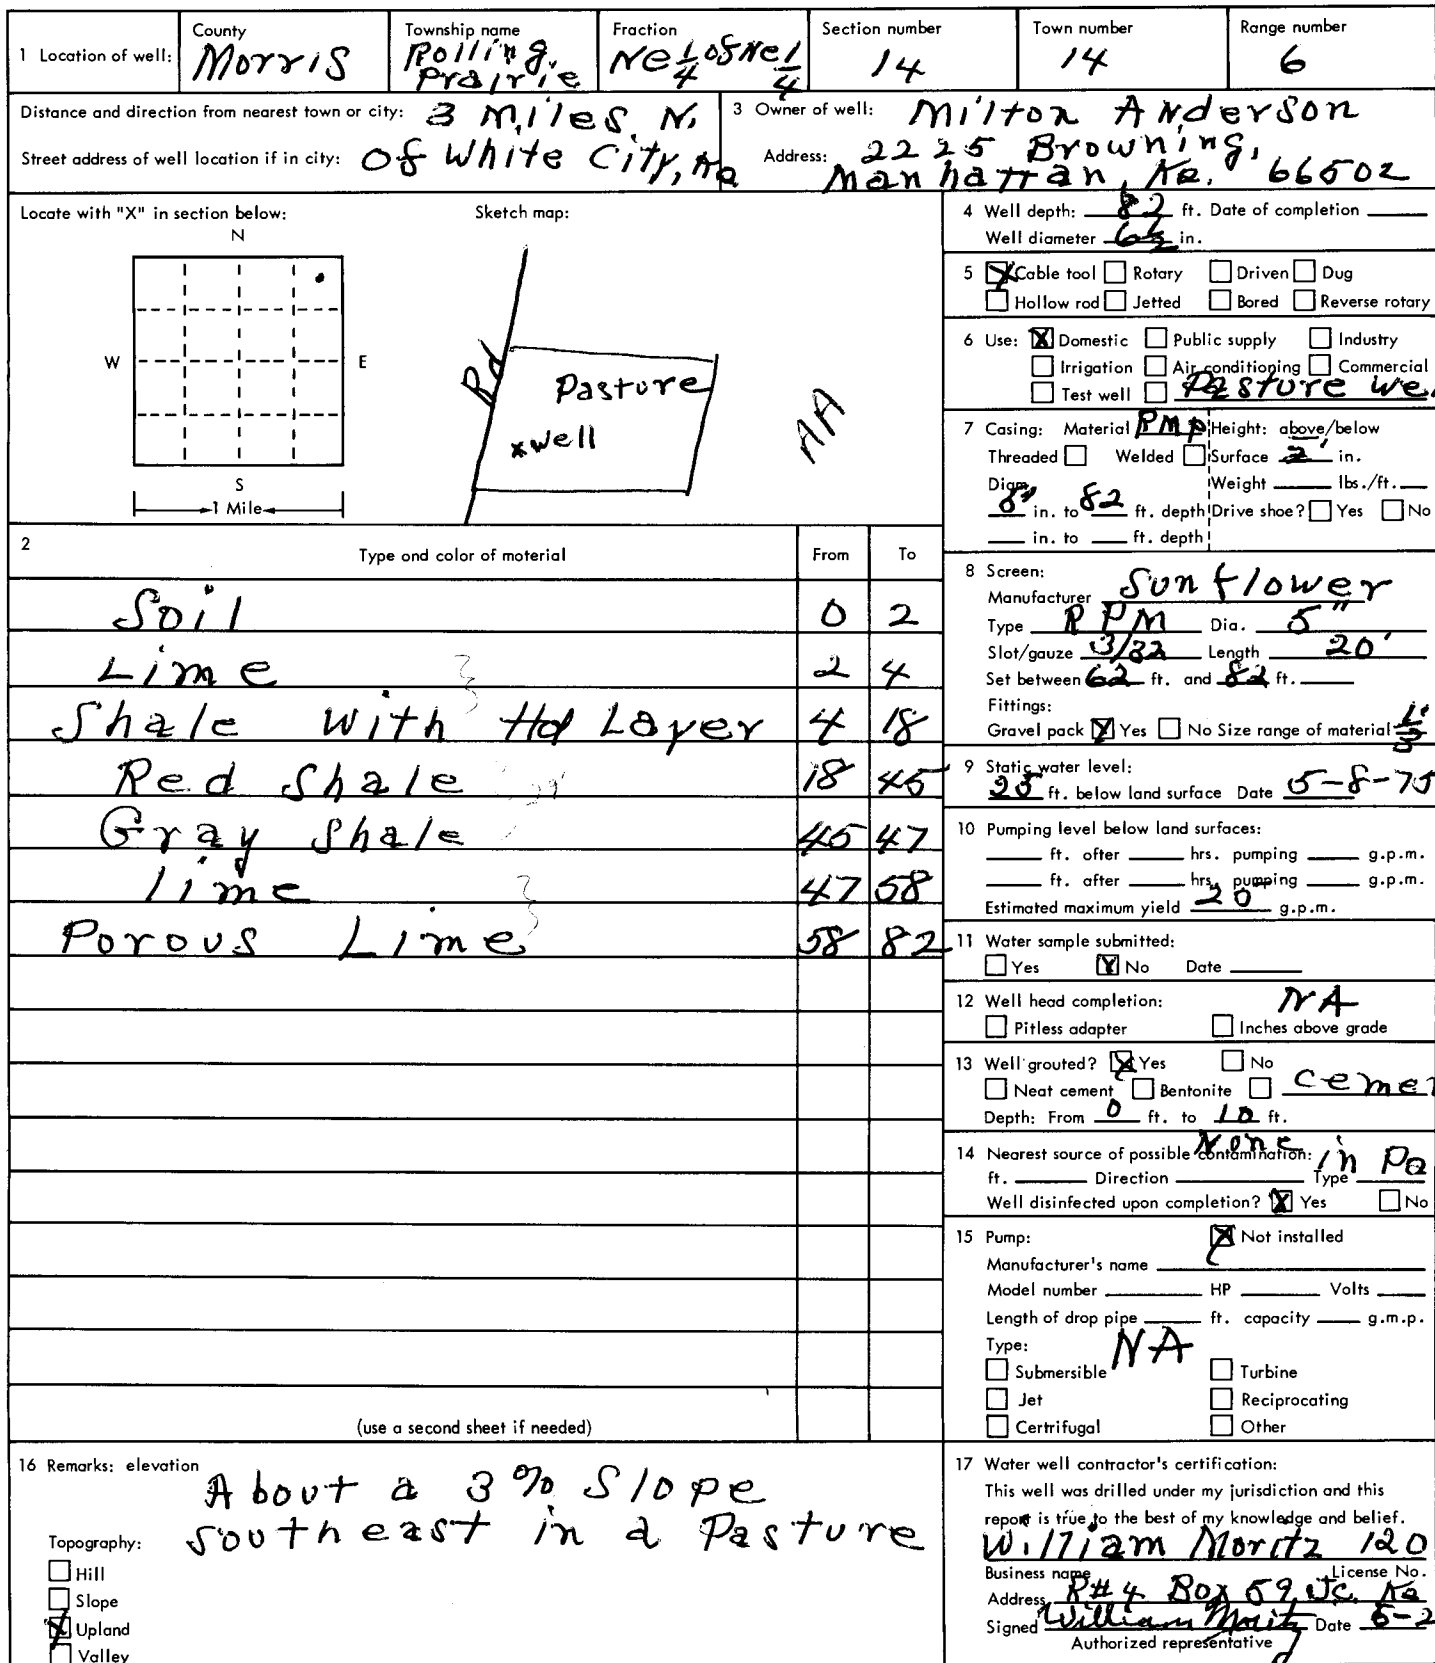 1 Location of well: County Morris Township name Rolling Prairie Fraction NE 1/4 of NE 1/4 Section number 14 Town number 14 Range number 6
Distance and direction from nearest town or city: 3 Miles N.
Street address of well location if in city: Of White City, Ka
3 Owner of well: Milton Anderson
Address: 2225 Browning,
Manhattan, Ka. 66502
Locate with "X" in section below:
N
W E
S
1 Mile
Sketch map:
Rd
Pasture
*well
AA
4 Well depth: 82 ft. Date of completion
Well diameter 6½ in.
5 Cable tool Rotary Driven Dug
Hollow rod Jetted Bored Reverse rotary
6 Use: X Domestic Public supply Industry
Irrigation Air conditioning Commercial
Test well Pasture We
7 Casing: Material RMP Height: above/below
Threaded Welded Surface 2' in.
Diam. Weight lbs./ft.
8" in. to 82 ft. depth Drive shoe? Yes No
in. to ft. depth
2 Type and color of material From To
Soil 0 2
Lime 2 4
Shale With Hd Layer 4 18
Red Shale 18 45
Gray Shale 45 47
lime 47 58
Porous Lime 58 82
(use a second sheet if needed)
8 Screen:
Manufacturer Sunflower
Type RPM Dia. 5"
Slot/gauze 3/32 Length 20'
Set between 62 ft. and 82 ft.
Fittings:
Gravel pack X Yes No Size range of material
9 Static water level:
25 ft. below land surface Date 5-8-75
10 Pumping level below land surfaces:
ft. after hrs. pumping g.p.m.
ft. after hrs. pumping g.p.m.
Estimated maximum yield 20 g.p.m.
11 Water sample submitted:
Yes X No Date
12 Well head completion: NA
Pitless adapter Inches above grade
13 Well grouted? X Yes No
Neat cement Bentonite Cemen
Depth: From 0 ft. to 10 ft.
14 Nearest source of possible contamination: None in Pa
ft. Direction Type
Well disinfected upon completion? X Yes No
15 Pump: X Not installed
Manufacturer's name
Model number HP Volts
Length of drop pipe ft. capacity g.m.p.
Type: NA
Submersible Turbine
Jet Reciprocating
Certrifugal Other
16 Remarks: elevation About a 3% Slope
Southeast in a Pasture
Topography:
Hill
Slope
X Upland
Valley
17 Water well contractor's certification:
This well was drilled under my jurisdiction and this
report is true to the best of my knowledge and belief.
William Moritz 120
Business name License No.
Address R#4 Box 59, Jc. Ka
Signed William Moritz Date 5-2
Authorized representative